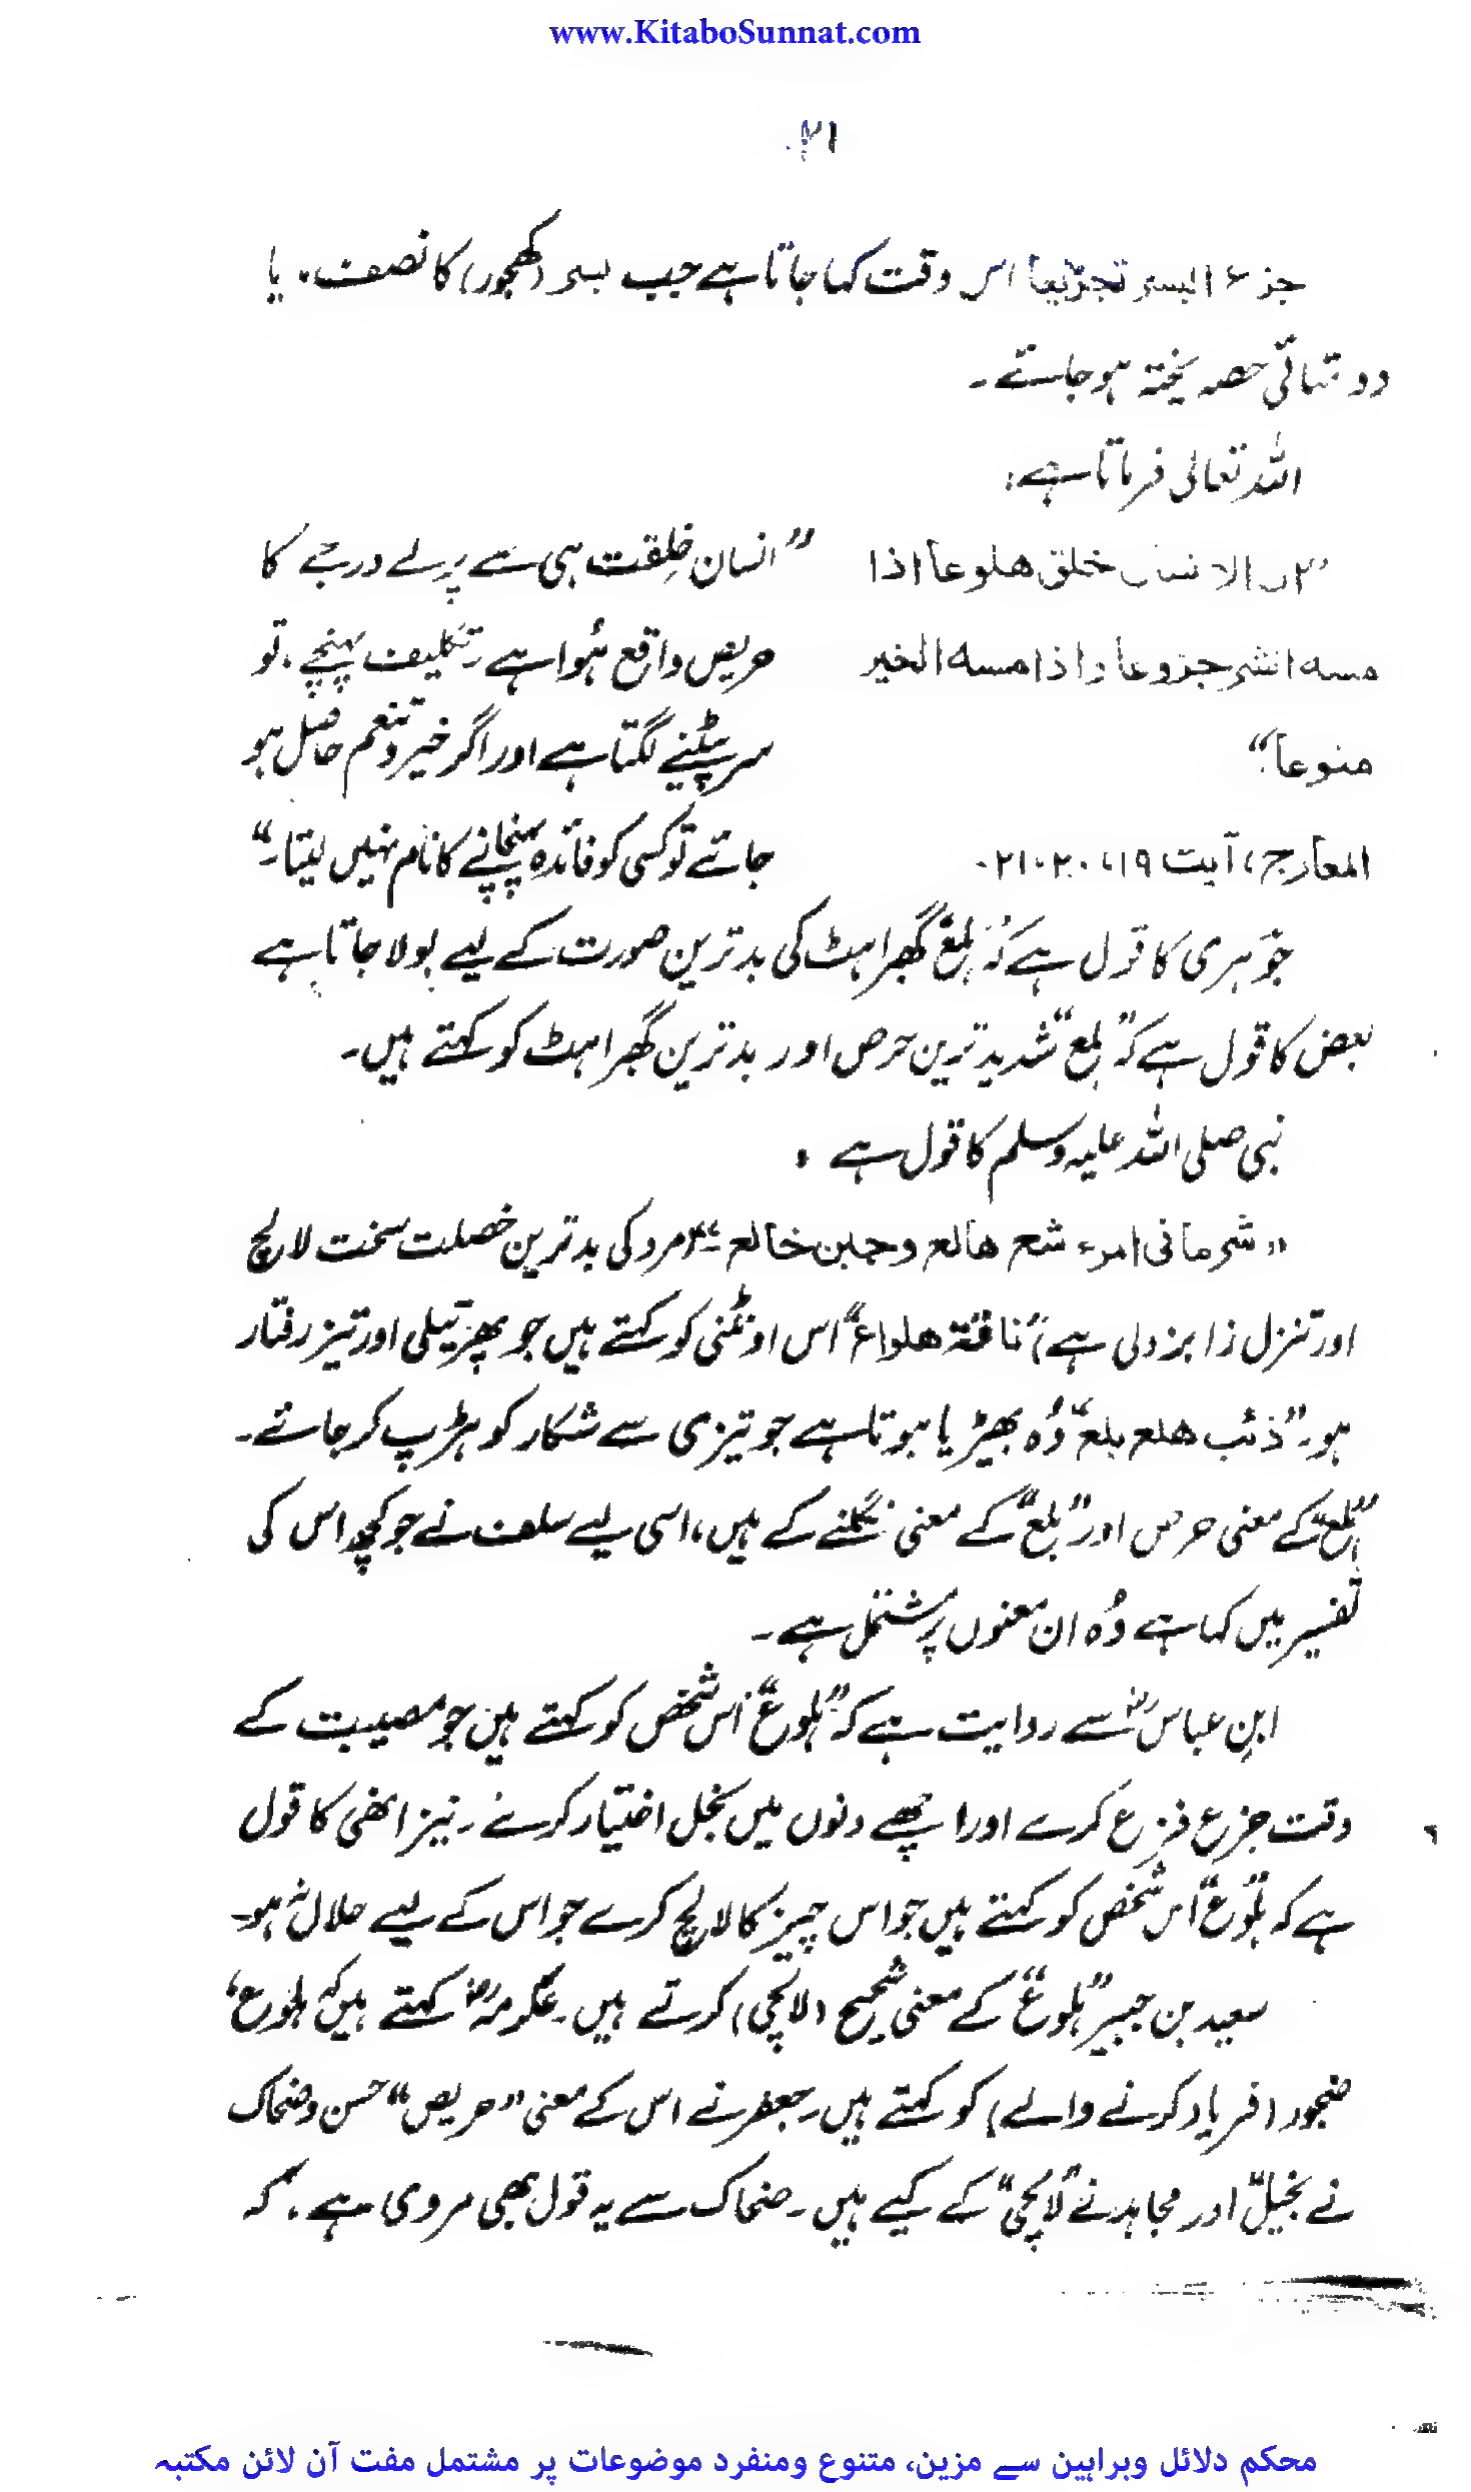 www.KitaboSunnat.com
۲۱
جزع البسر تجزیعا اس وقت کہا جاتا ہے جب بسر (کھجور) کا نصف، یا
دو تہائی حصہ پختہ ہو جائے۔
اللہ تعالی فرماتا ہے:
الانسان خلق ھلوعاً اذا
”انسان خِلقت ہی سے پرلے درجے کا
مسہ الشر جزوعا واذا مسہ الخیر
حریص واقع ہُوا ہے۔ تکلیف پہنچے، تو
منوعاً“
سر پیٹنے لگتا ہے اور اگر خیر و تنعم حاصل ہو
المعارج، آیت ۱۹، ۲۰، ۲۱۔
جائے تو کسی کو فائدہ پہنچانے کا نام نہیں لیتا۔“
جوہری کا قول ہے کہ ہلع گھبراہٹ کی بدترین صورت کے لیے بولا جاتا ہے
بعض کا قول ہے کہ ”ہلع“ شدید ترین حرص اور بدترین گھبراہٹ کو کہتے ہیں۔
نبی صلی اللہ علیہ وسلم کا قول ہے :
”شر ما فی امرء شح ھالع وجبن خالع“ (مرد کی بدترین خصلت سخت لالچ
اور تنزل زا بزدلی ہے) ”ناقۃ ھلواع“ اس اونٹنی کو کہتے ہیں جو پھرتیلی اور تیز رفتار
ہو۔ ”ذئب ھلع بلع“ وُہ بھیڑیا ہوتا ہے جو تیزی سے شکار کو ہڑپ کر جائے۔
”ہلع“ کے معنی حرص اور ”بلع“ کے معنی نگلنے کے ہیں، اسی لیے سلف نے جو کچھ اس کی
تفسیر میں کہا ہے وُہ ان معنوں پر مشتمل ہے۔
ابنِ عباسؓ سے روایت ہے کہ ”ہلوع“ اُس شخص کو کہتے ہیں جو مصیبت کے
وقت جزع فزع کرے اور اچھے دنوں میں بخل اختیار کرے۔ نیز انھی کا قول
ہے کہ ”ہلوع“ اُس شخص کو کہتے ہیں جو اس چیز کا لالچ کرے جو اس کے لیے حلال نہ ہو۔
سعید بن جبیر ”ہلوع“ کے معنی شحیح (لالچی) کرتے ہیں۔ عکرمہؓ کہتے ہیں کہ ہلوع،
ضجور (فریاد کرنے والے) کو کہتے ہیں۔ جعفر نے اس کے معنی ”حریص“ حسن و ضحاک
نے ”بخیل“ اور مجاہد نے ”لالچی“ کے کیے ہیں۔ ضحاک سے یہ قول بھی مروی ہے، کہ
محکم دلائل وبراہین سے مزین، متنوع ومنفرد موضوعات پر مشتمل مفت آن لائن مکتبہ